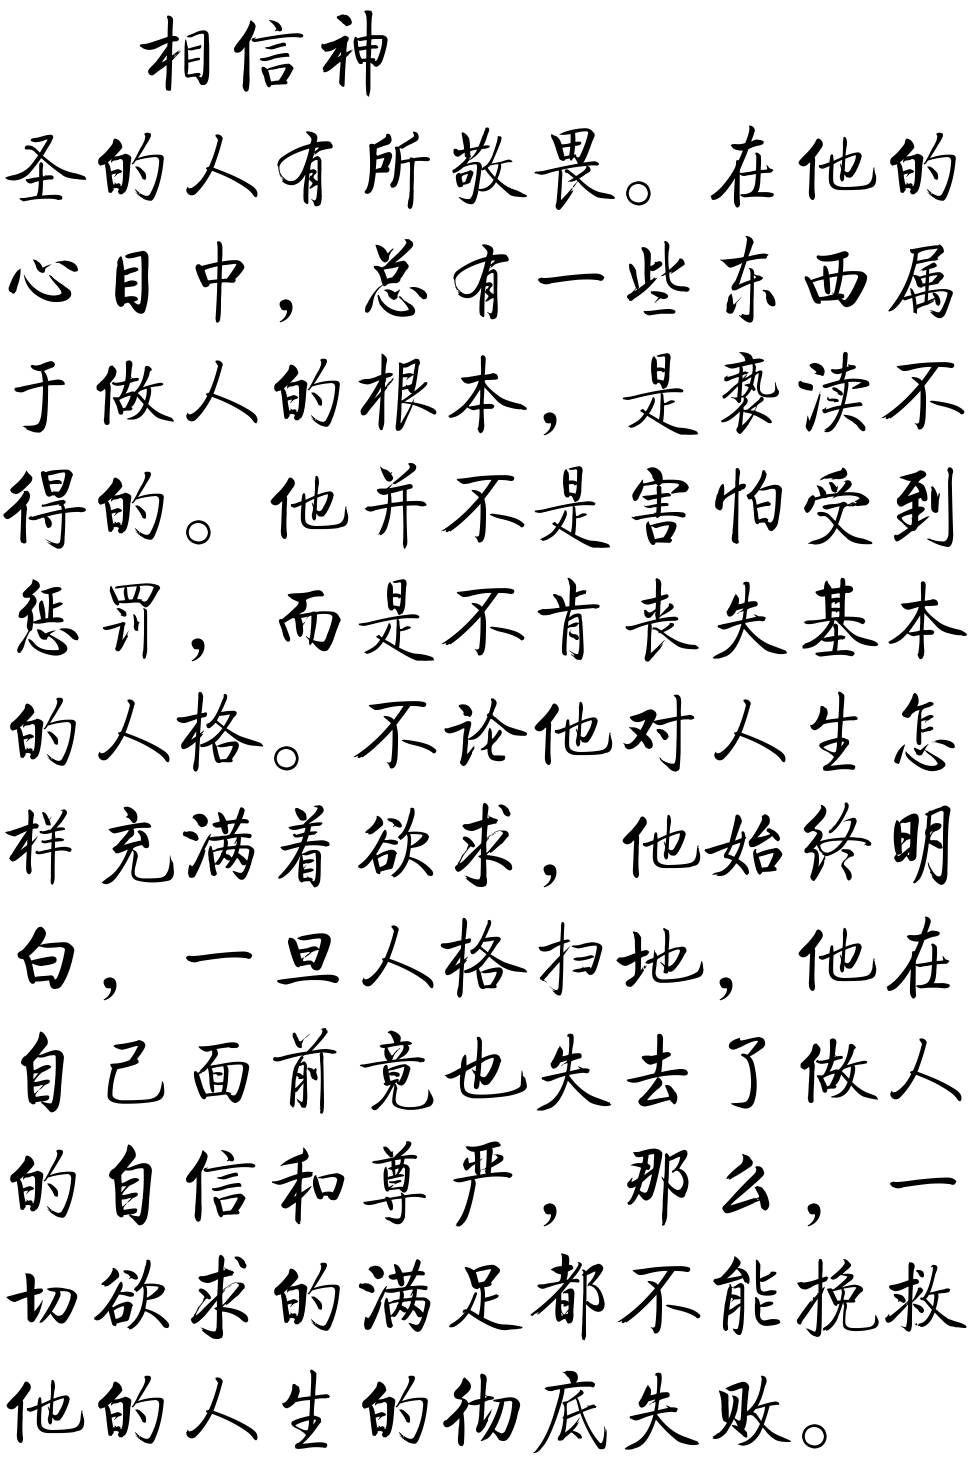 相信神
圣的人有所敬畏。在他的
心目中，总有一些东西属
于做人的根本，是亵渎不
得的。他并不是害怕受到
惩罚，而是不肯丧失基本
的人格。不论他对人生怎
样充满着欲求，他始终明
白，一旦人格扫地，他在
自己面前竟也失去了做人
的自信和尊严，那么，一
切欲求的满足都不能挽救
他的人生的彻底失败。